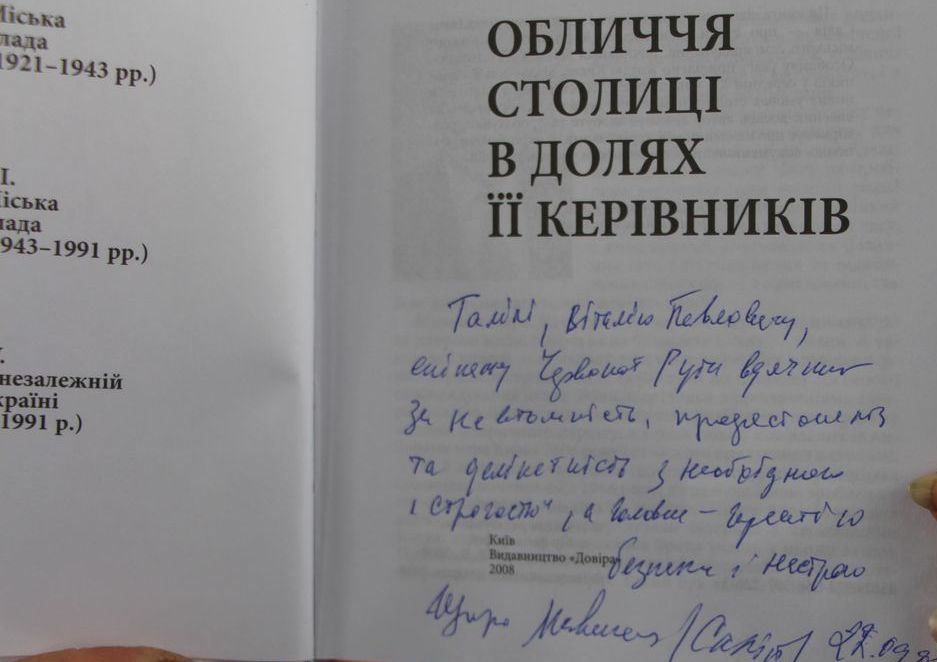 Міська
лада
1921–1943 рр.)
І.
Міська
лада
943–1991 рр.)
незалежній
країні
1991 р.)
ОБЛИЧЧЯ
СТОЛИЦІ
В ДОЛЯХ
ЇЇ КЕРІВНИКІВ
Галині, Віталію Павловичу,
екіпажу Червоної Рути вдячний
За невтомність,
та делікатність з необхідною
і строгостю, а головне – гарантію
безпеки і настрою
Київ
Видавництво «Довіра»
2008
Щиро